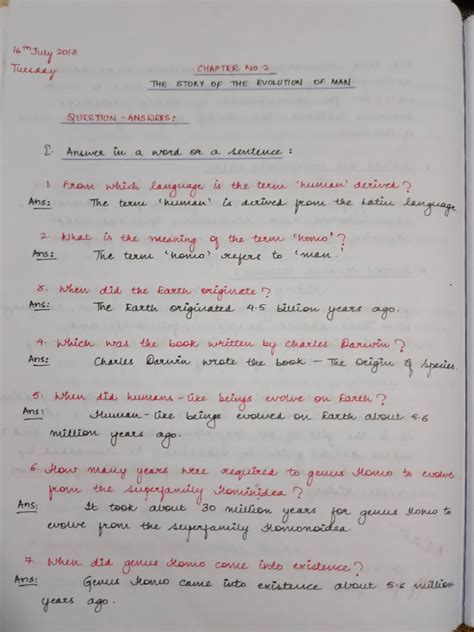 16th July 2018
Tuesday
CHAPTER NO. 2
THE STORY OF THE EVOLUTION OF MAN
QUESTION - ANSWERS:
I. Answer in a word or a sentence:
1. From which language is the term 'human' derived?
Ans: The term 'human' is derived from the Latin language.
2. What is the meaning of the term 'homo'?
Ans: The term 'homo' refers to 'man.'
3. When did the Earth originate?
Ans: The Earth originated 4.5 billion years ago.
4. Which was the book written by Charles Darwin?
Ans: Charles Darwin wrote the book - The Origin of Species.
5. When did humans-like beings evolve on Earth?
Ans: Human-like beings evolved on Earth about 5.6
million years ago.
6. How many years were required to genus Homo to evolve
from the superfamily Hominidea?
Ans: It took about 30 million years for genus Homo to
evolve from the superfamily Homonoidea.
7. When did genus Homo come into existence?
Ans: Genus Homo came into existence about 5.6 million
years ago.